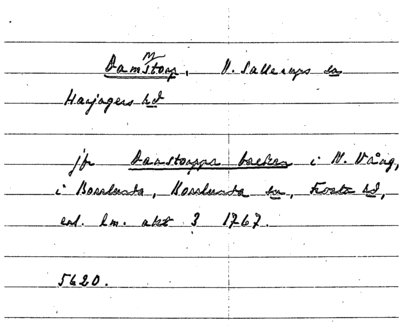 Damstorp, V. Sallerups sn
Harjagers hd
jfr Damstorpa backen i N. Vång,
i Borrlunda, Borrlunda sn, Frosta hd,
enl. lm. akt 3 1767.
5620.